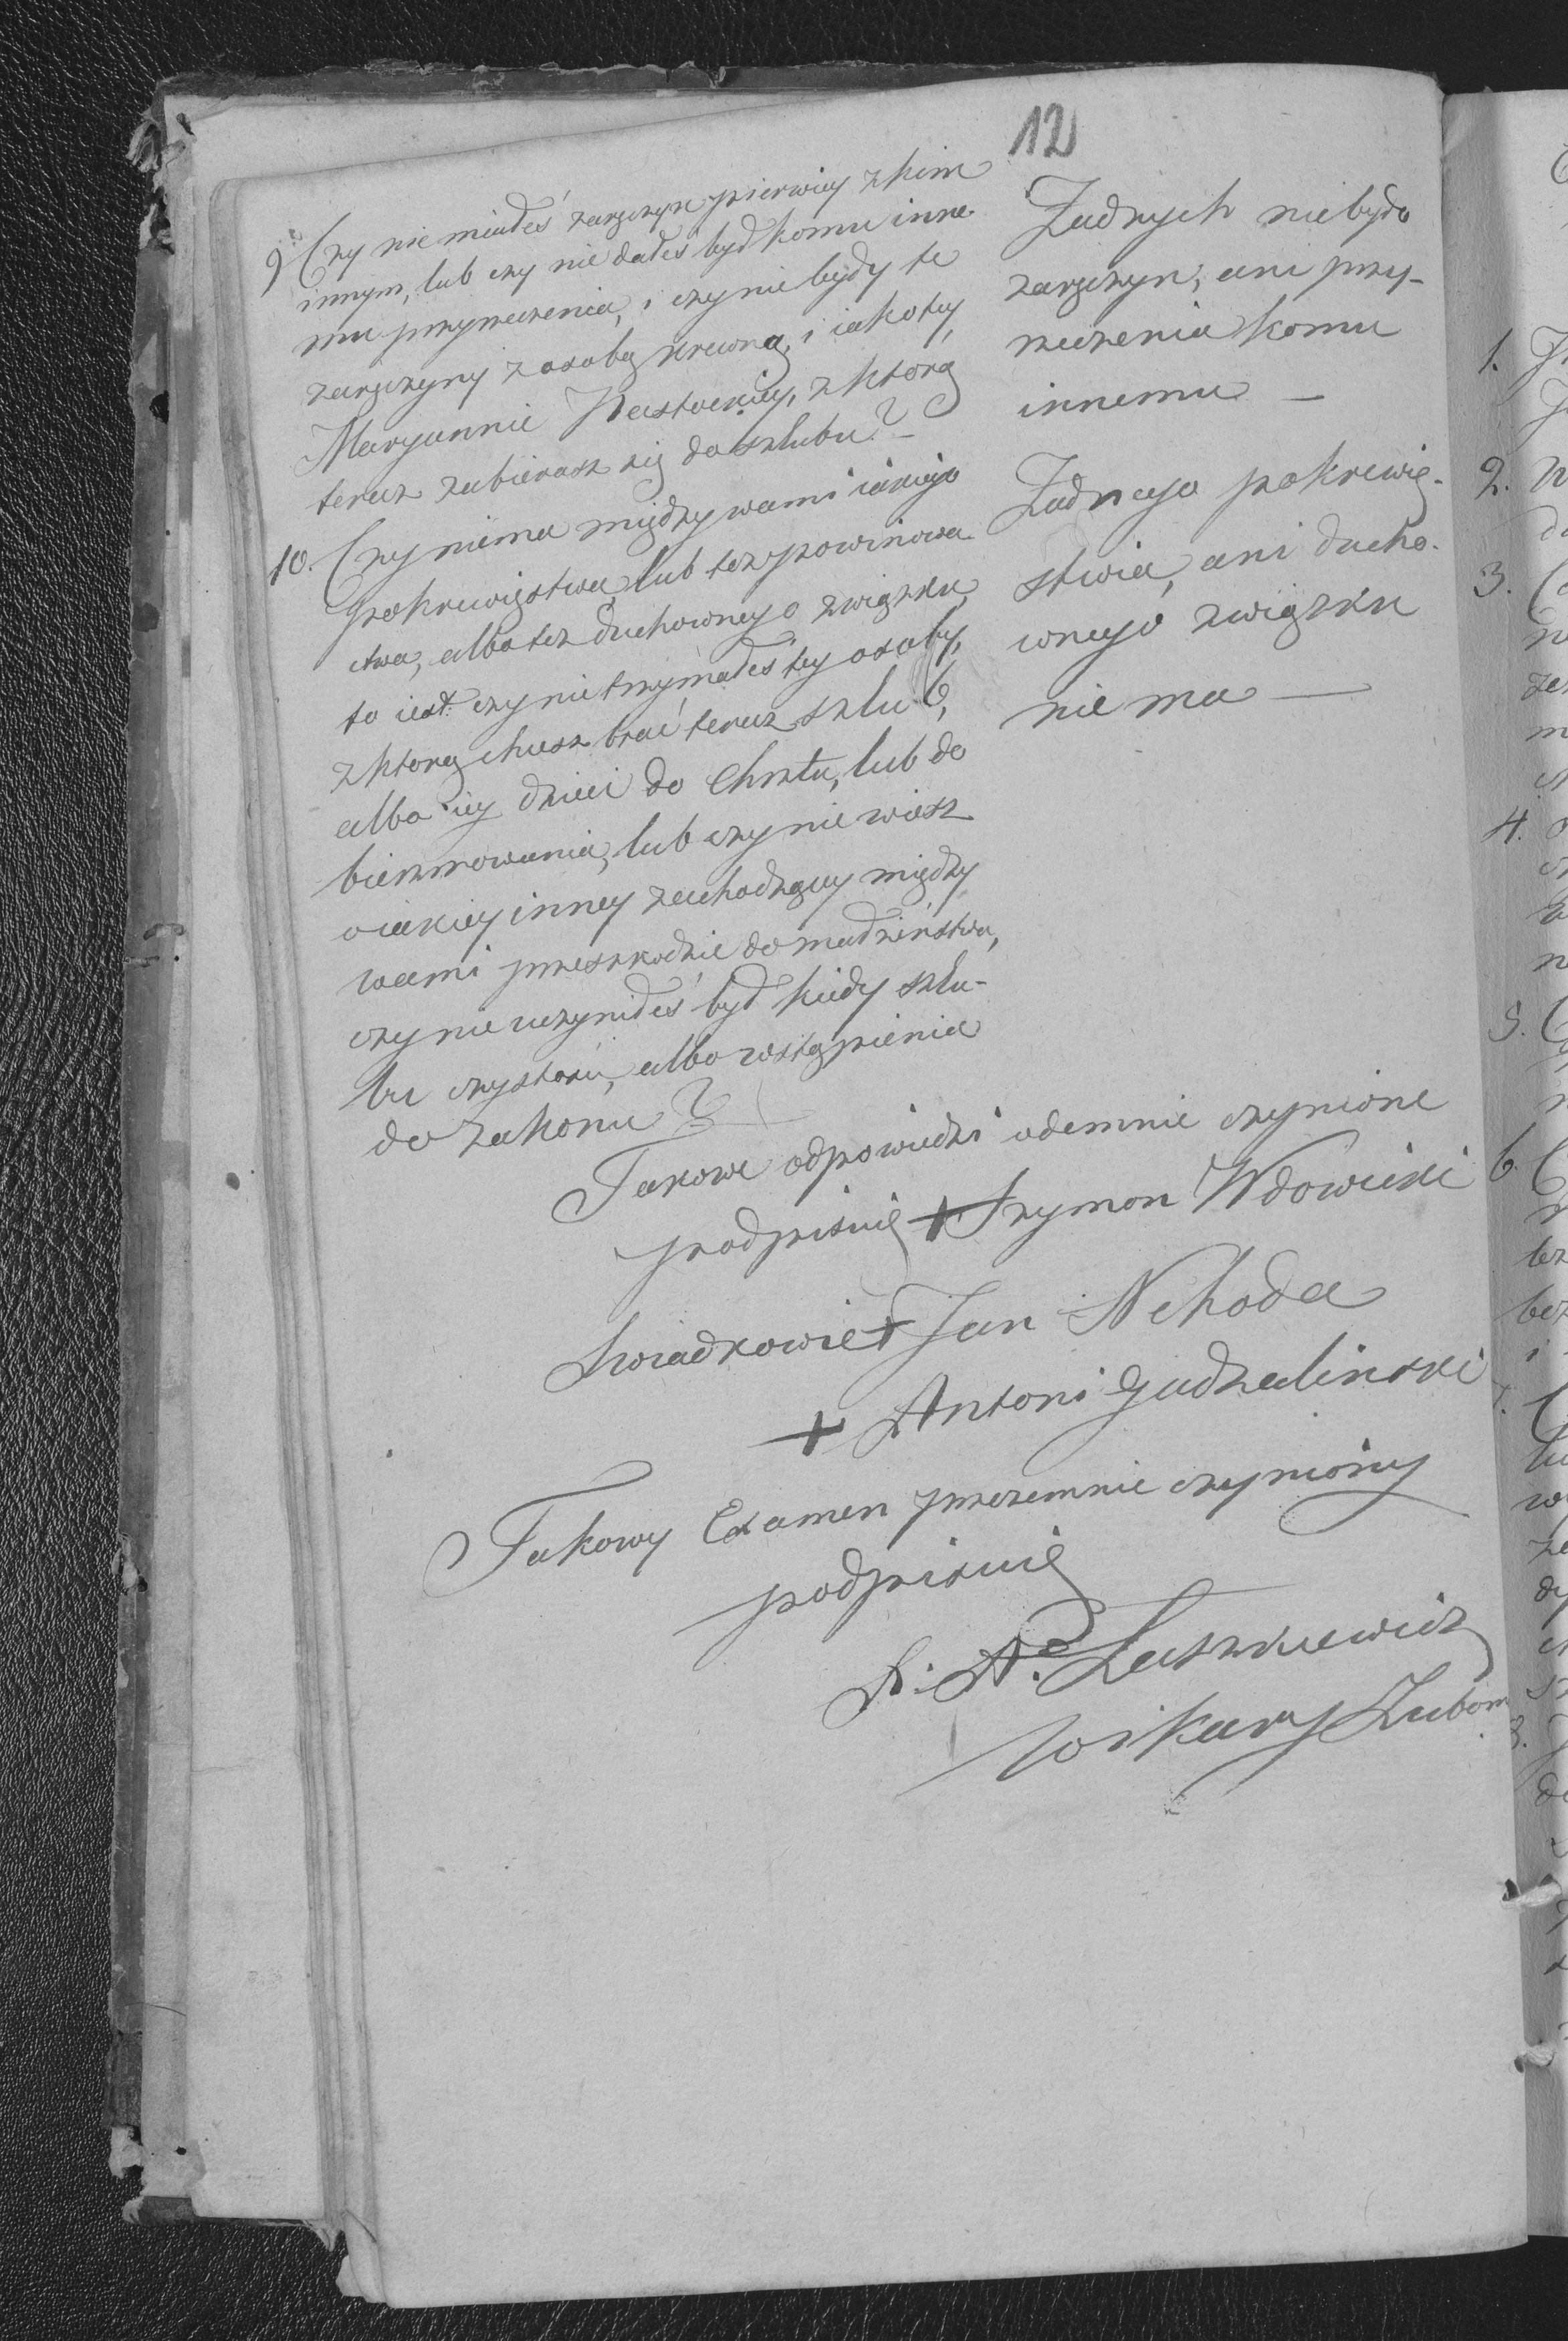 12
9 Czy nie miałeś zaręczyn pierwiey z kim
innym, lub czy nie dałeś był komu inne-
mu przyrzeczenia, i czy nie były te
zaręczyny z osobą krewną, i iakotey
Maryannie z którą
teraz zabierasz się do szlubu? –
10. Czy niema między wami iakiego
pokrewięstwa lub też powinowa-
ctwa, albo też duchownego związku,
to iest czy nie trzymałeś tey osoby,
z którą chcesz brać teraz szlub,
albo iey dzieci do Chrztu, lub do
bierzmowania, lub czy nie wiesz
o iakiey inney zachodzącey między
wami przeszkodzie do małżeństwa,
czy nie uczyniłeś był kiedy szlu-
bu czystości, albo wstąpienia
do zakonu?
Żadnych niebyło
zaręczyn, ani przy-
rzeczenia komu
innemu –
Żadnego pokrewię-
stwia, ani ducho-
wnego związku
nie ma –
Takowe odpowiedzi odemnie czynione
podpisuię + Szymon Wdowicki
Swiadkowie + Jan Nehoda
+ Antoni Gudzalinski
Takowy Examen przezemnie czyniony
podpisuię
X. A. Laszkiewicz
Wikary Lubom
1.
2.
3.
4.
5.
6.